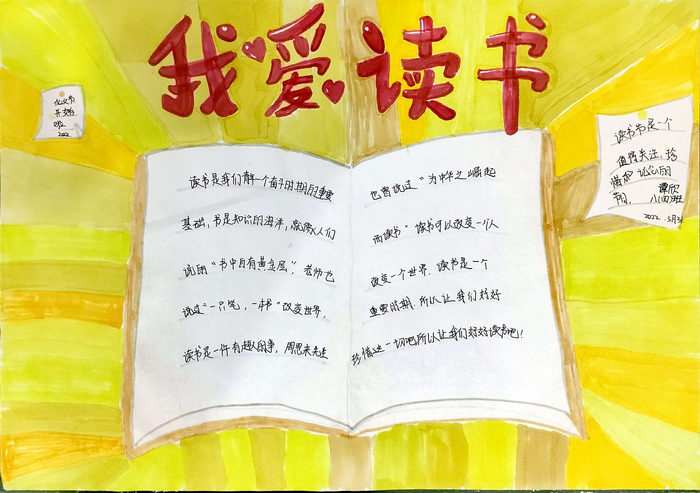 我爱读书
读书节
开始
啦
2022
读书是我们每一个奋斗时期的重要
基础，书是知识的海洋，就像人们
说的“书中自有黄金屋”，老师也
说过“一只笔，一本书”改变世界，
读书是一件有趣的事，周恩来先生
也曾说过“为中华之崛起
而读书”读书可以改变一个人
改变一个世界，读书是一个
重要时期，所以让我们好好
珍惜这一切吧所以让我们好好读书吧！
读书节是一个
值得关注，珍
惜和 的
节，
谭欣
八(四)班
2022.5月